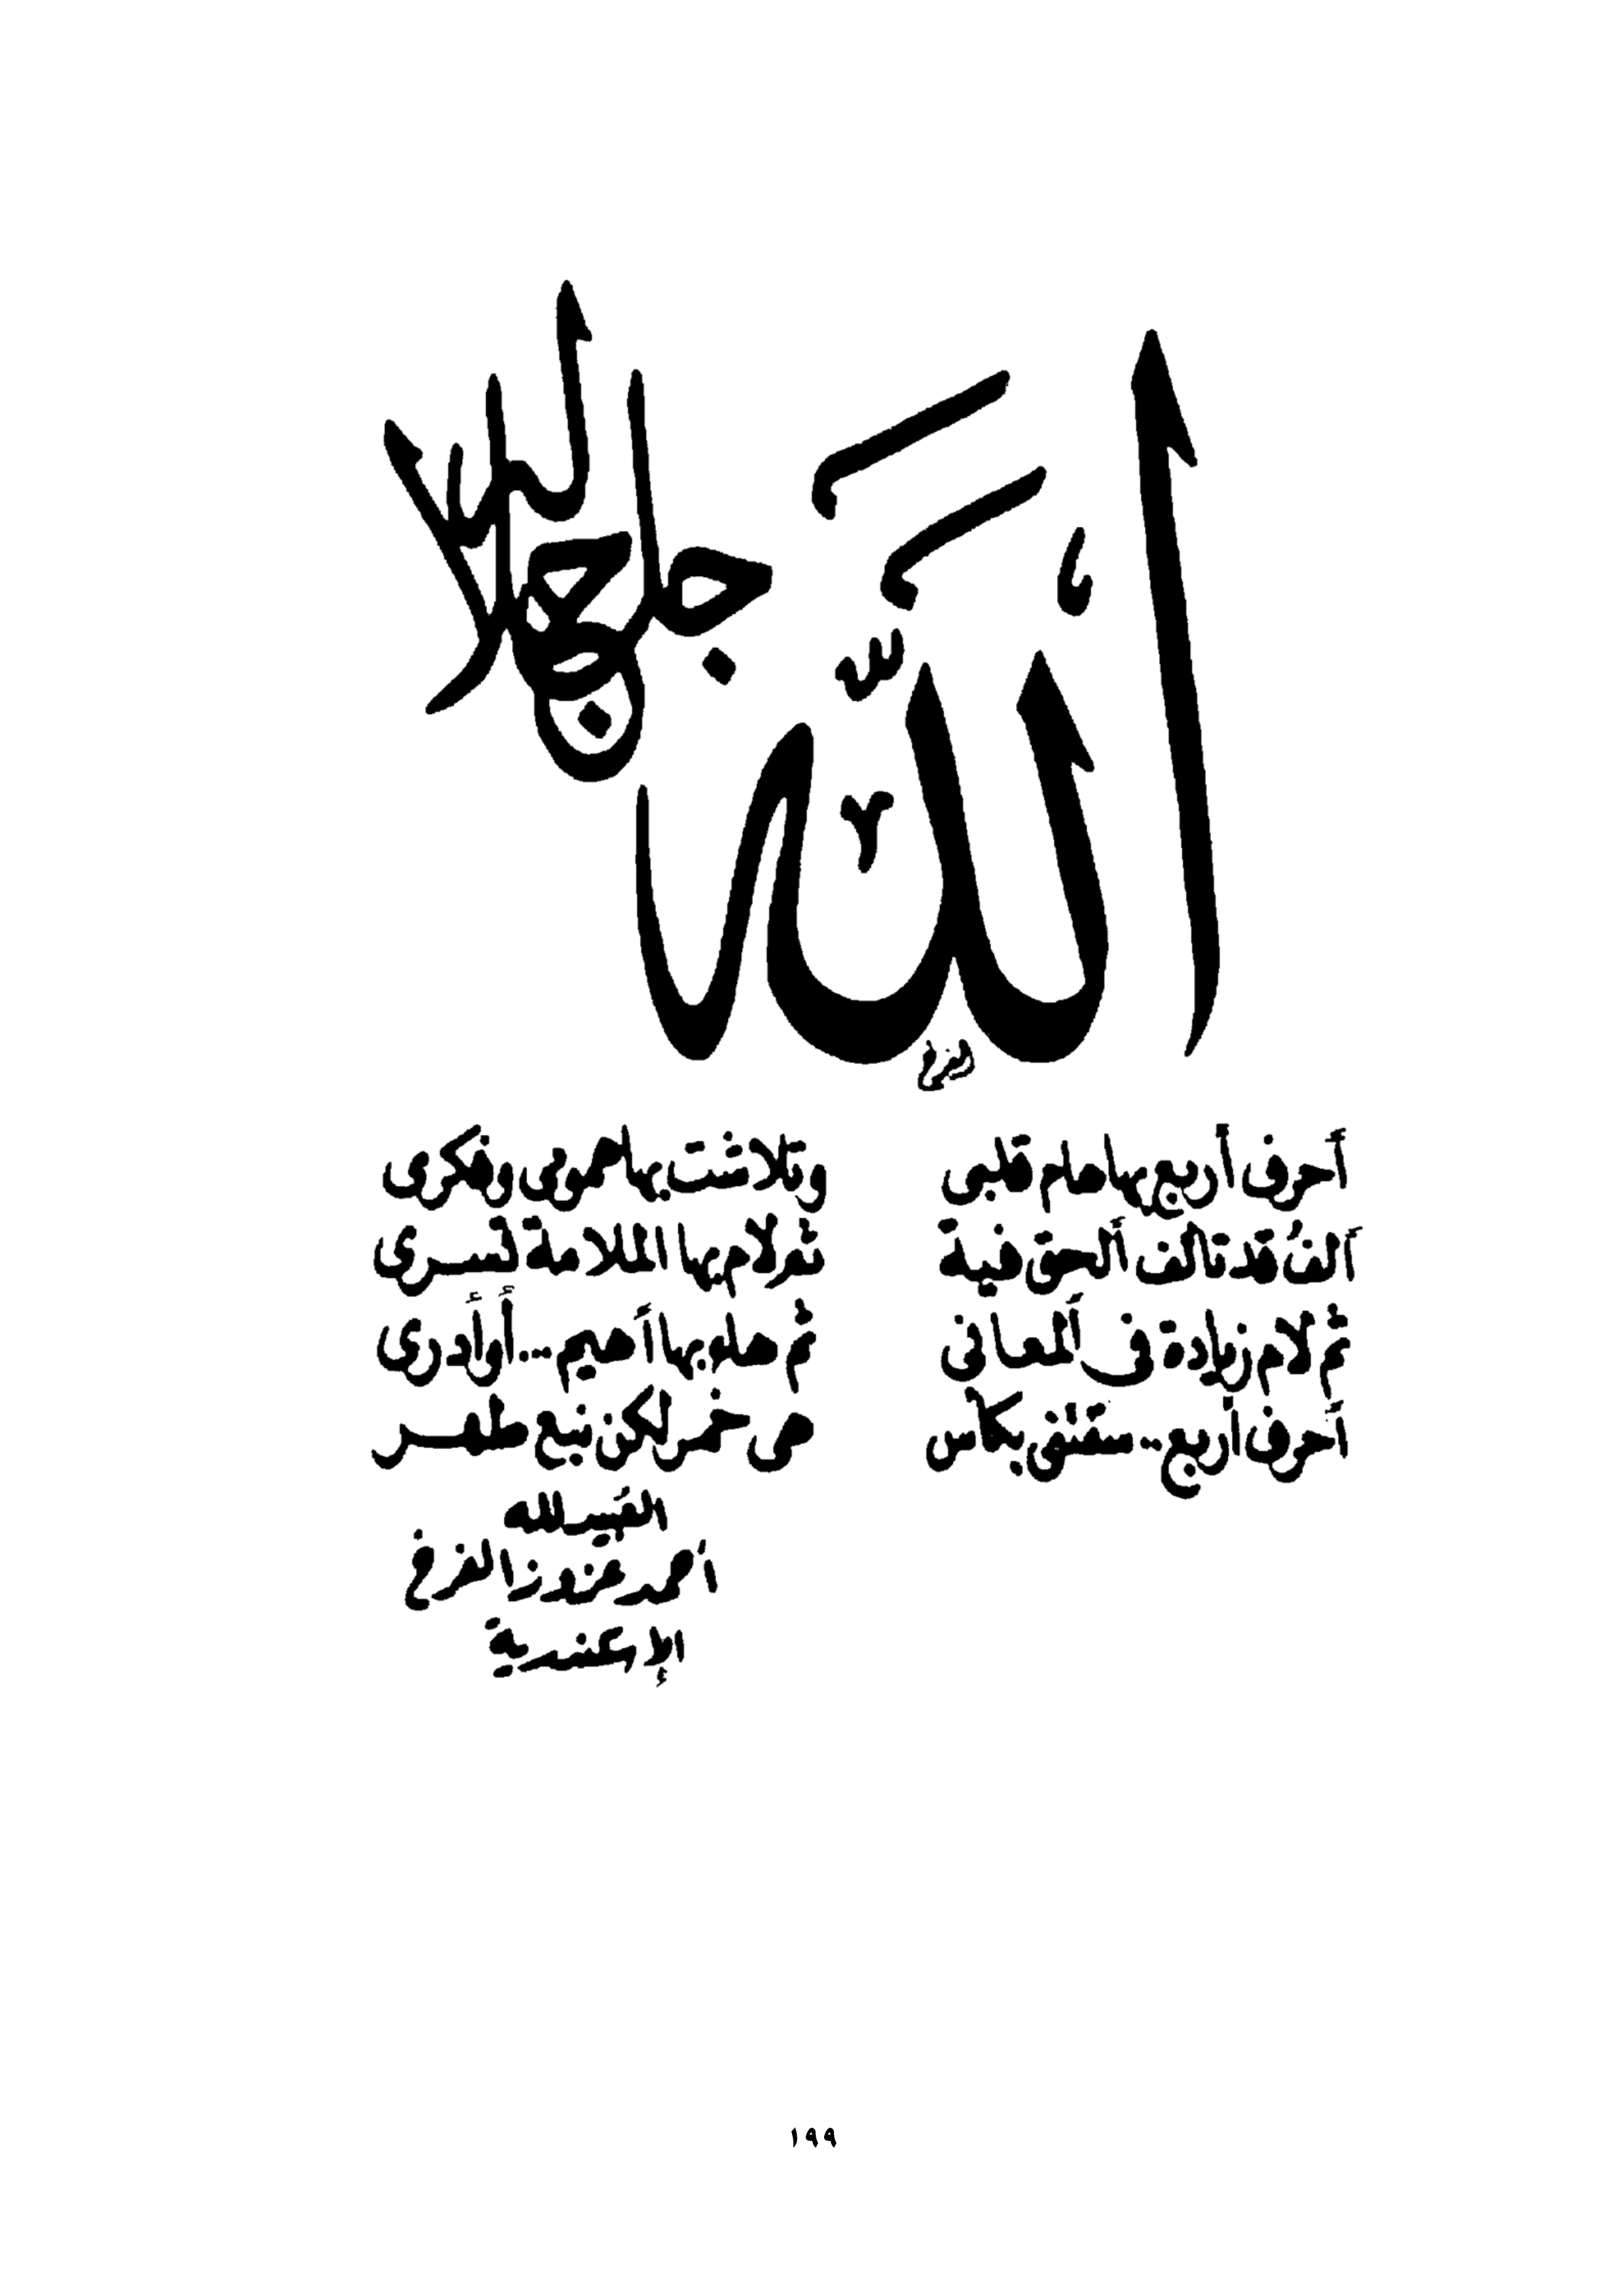 الله جل جلاله
أحرف أربع بها هام قلبى وتلاشت بها همومى وفكرى
ألف قد تألف الحق فيه ثم لام بها الملامة تسرى
ثم لام زيادة فى المعانى ثم هاء بها أهيم.. أو أدرى
أحرف أربع.. سقتنى بكأس هى خمر لكن نبع طهر
الفقير لله
أحمد
الإسكندرية
١٩٩